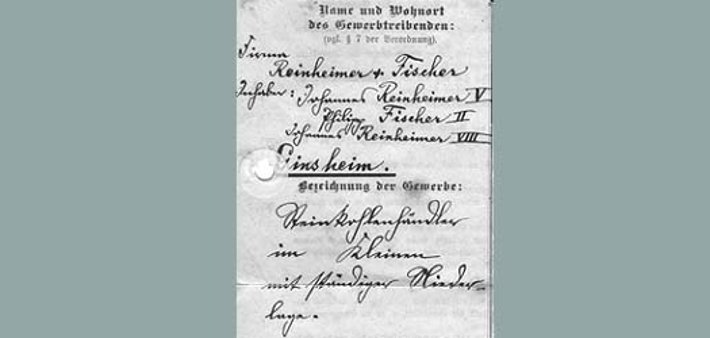 Name und Wohnort
des Gewerbtreibenden:
(vgl. § 7 der Verordnung).
Firma
Reinheimer & Fischer
Inhaber: Johannes Reinheimer V
Philipp Fischer II
Johannes Reinheimer VIII
Ginsheim.
Bezeichnung der Gewerbe:
Steinkohlenhändler
im Kleinen
mit ständiger Nieder-
lage.